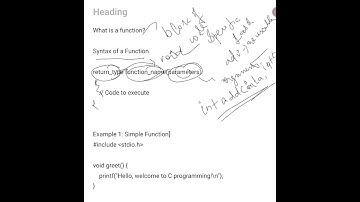 Heading
What is a function?
block of
code
specific
task
Syntax of a Function
return_type function_name(parameters)
{
// Code to execute
}
int add(int a, int
Example 1: Simple Function
#include <stdio.h>
void greet() {
printf("Hello, welcome to C programming!\n");
}